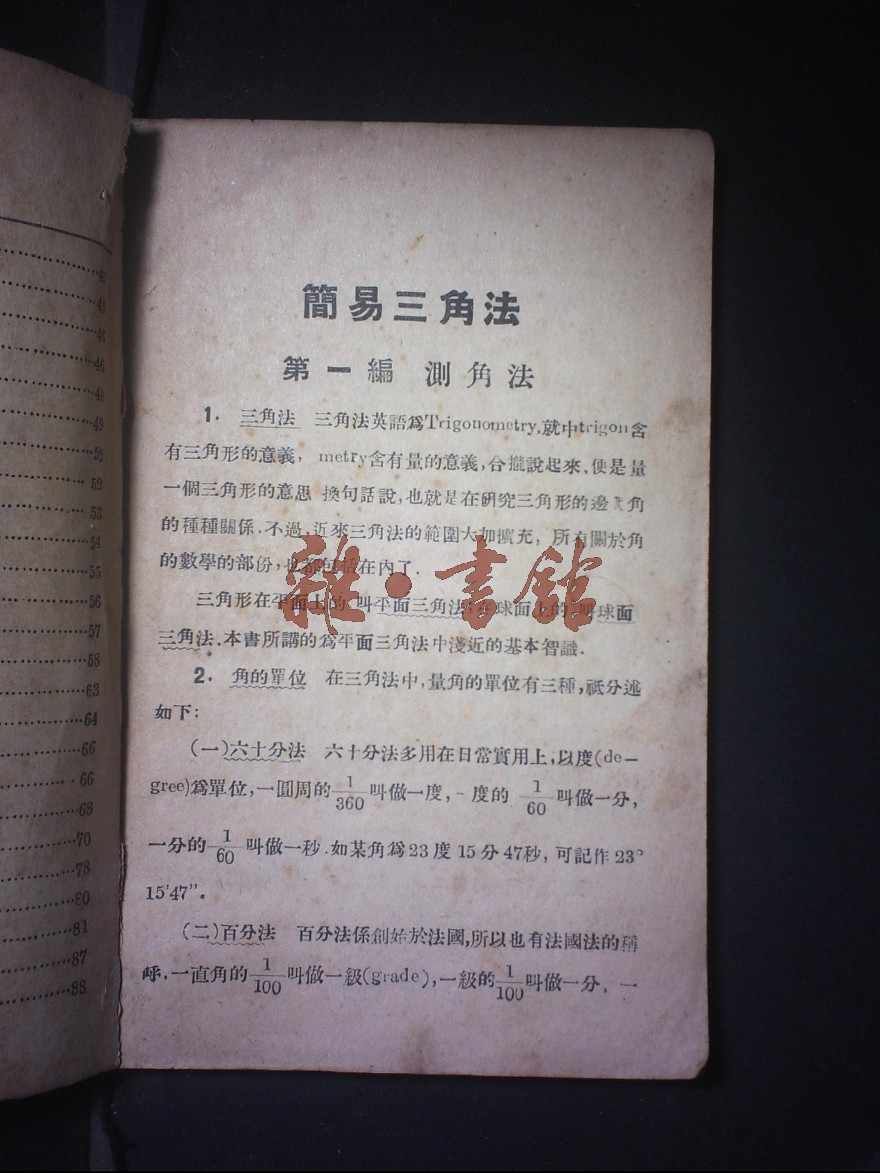 45
45
46
46
48
49
52
52
53
54
55
56
57
58
63
64
66
66
68
70
78
80
81
87
88
簡易三角法
第一編 測角法
1. 三角法 三角法英語爲Trigonometry,就中trigon含
有三角形的意義, metry含有量的意義,合攏說起來、便是量
一個三角形的意思 換句話說,也就是在研究三角形的邊 角
的種種關係.不過,近來三角法的範圍大加擴充, 所有關於角
的數學的部份,也都包括在內了.
三角形在平面上的 叫平面三角法 球面上的, 叫球面
三角法.本書所講的爲平面三角法中淺近的基本智識.
2. 角的單位 在三角法中,量角的單位有三種,祇分述
如下:
(一)六十分法 六十分法多用在日常實用上,以度(de-
gree)爲單位,一圓周的 1/360 叫做一度,一度的 1/60 叫做一分,
一分的 1/60 叫做一秒.如某角爲23度15分47秒,可記作23°
15'47".
(二)百分法 百分法係創始於法國,所以也有法國法的稱
呼.一直角的 1/100 叫做一級(grade),一級的 1/100 叫做一分, 一
雜·書館